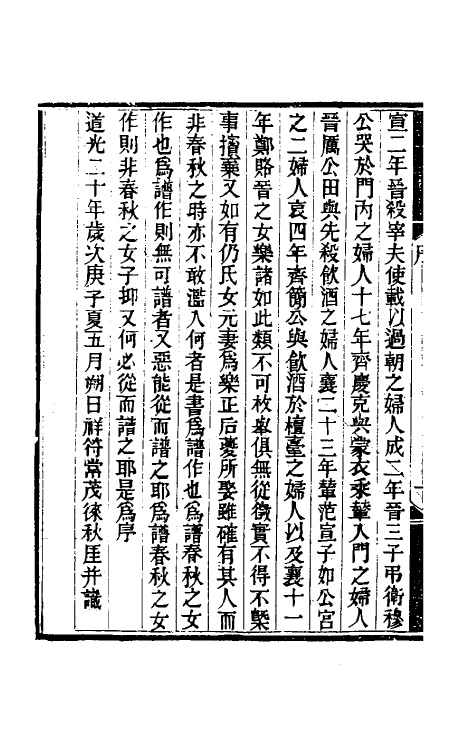 宣二年晉殺宰夫使載以過朝之婦人成二年晉三子弔衛穆
公哭於門內之婦人十七年齊慶克與蒙衣乘輦入門之婦人
晉厲公田與先殺飲酒之婦人襄二十三年輦范宣子如公宮
之二婦人哀四年齊簡公與飲酒於檀臺之婦人以及襄十一
年鄭賂晉之女樂諸如此類不可枚舉俱無從徵實不得不槩
事擯棄又如有仍氏女元妻為樂正后夔所娶雖確有其人而
非春秋之時亦不敢濫入何者是書為譜作也為譜春秋之女
作也為譜作則無可譜者又惡能從而譜之耶為譜春秋之女
作則非春秋之女子抑又何必從而譜之耶是為序
道光二十年歲次庚子夏五月朔日祥符常茂徠秋厓并識
序